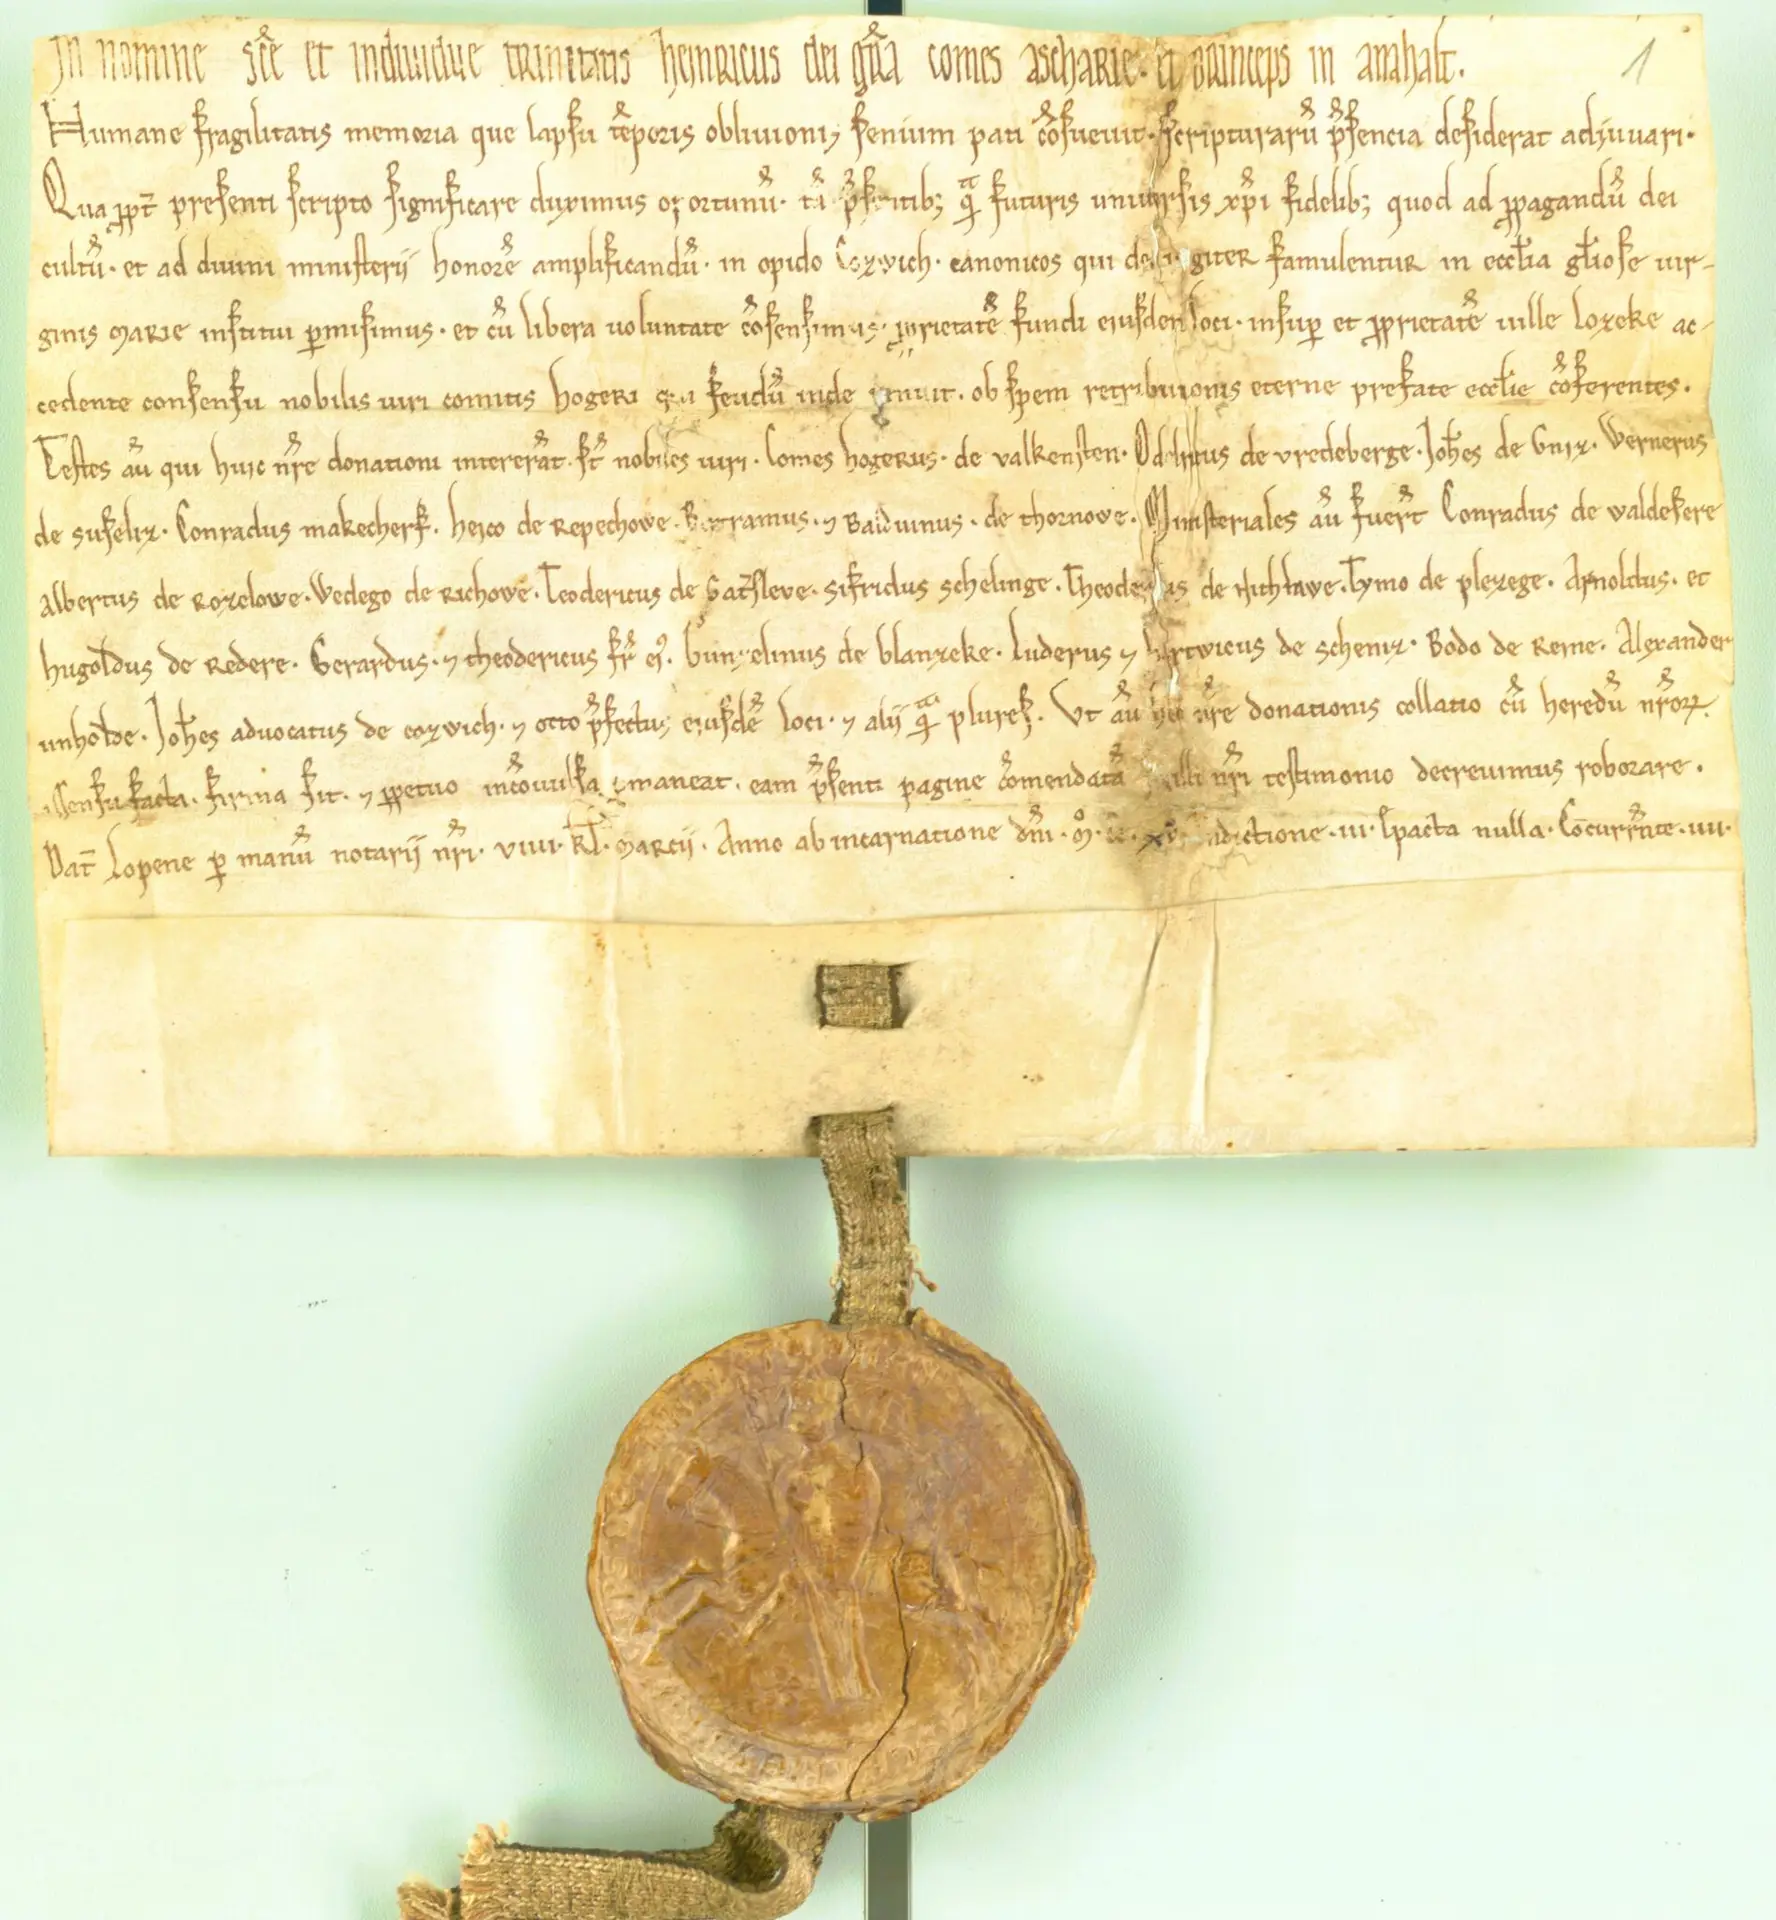 In nomine sc̄e et individue trinitatis heinricus dei gr̄a comes ascharie. et princeps in anahalt. 1
Humane fragilitatis memoria que lapsu tēporis oblivionis senium pati cōsuevit. scripturarū p̄sencia desiderat adjuvari.
Qua propt̄ presenti scripto significare duximus oportunū. tā p̄sentib; q̄ futuris universis xp̄i fidelib; quod ad ꝓpagandū dei
cultū. et ad divini ministerij honorē amplificandū. in opido Cozwich. canonicos qui giter famulentur in eccl̄ia gl̄iose vir-
ginis marie institui ꝑmisimus. et cū libera voluntate cōsensimus ꝓprietatē fundi ejusdem loci. insuꝑ et ꝓprietatē ville lozeke ac-
cedente consensu nobilis viri comitis hogeri qui feudū inde tenuit. ob spem retributionis eterne prefate eccl̄ie cōferentes.
Testes aū qui huic nr̄e donationi intererāt. st̄ nobiles viri. Comes hogerus. de valkensten. Odelricus de vredeberge. Joh̄es de Gniz. Wernerus
de suseliz. Conradus makecherf. heico de Repechowe. Bertramus. ⁊ Balduinus. de thornowe. Ministeriales aū fuer̄t Conradus de valdesere
Albertus de Rozelowe. Wedego de Richowe. Teodericus de Gat̄sleve. Sifridus schelinge. Theodericus de Tymo de plezege. Arnoldus. et
hugoldus de Redere. Gerardus. ⁊ theodericus fr̄ ej9. Gunzelinus de blanzeke. luderus ⁊ hartwicus de scheniz. Bodo de Reine. Alexander
unholde. Joh̄es advocatus de cozwich. ⁊ otto p̄fectus ejusdē loci. ⁊ alij q̄ plures. Ut aū nr̄e donationis collatio cū heredū nr̄oꝝ
ssensu facta. firma sit. ⁊ ꝑpetuo incōvulsa ꝑmaneat. eam p̄senti pagine cōmendatā nr̄i testimonio decrevimus roborare.
Dat̄ Lopene ꝑ manū notarij nr̄i. viiii. kl̄. marcij. Anno ab incarnatione dn̄i. M. indictione. iii. Epacta nulla. Cōcurrēnte. iii.